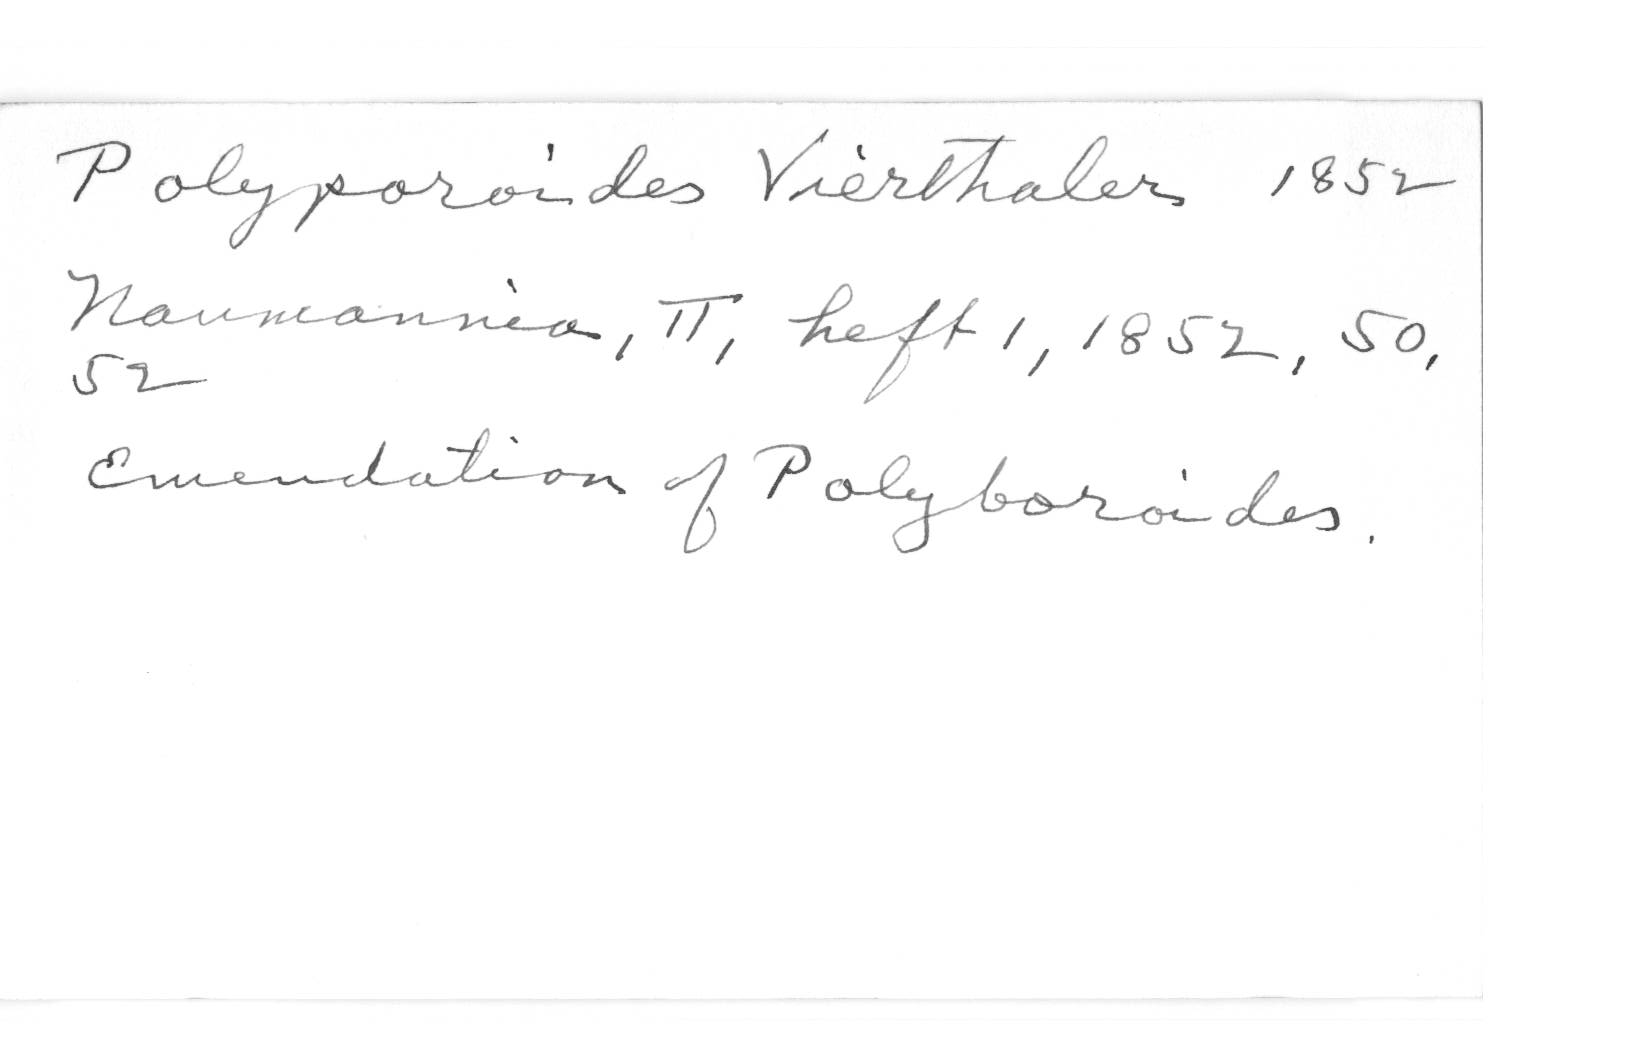 Polyporoides Vierthaler 1852
Naumannia, II, heft 1, 1852, 50,
52
Emendation of Polyboroides.